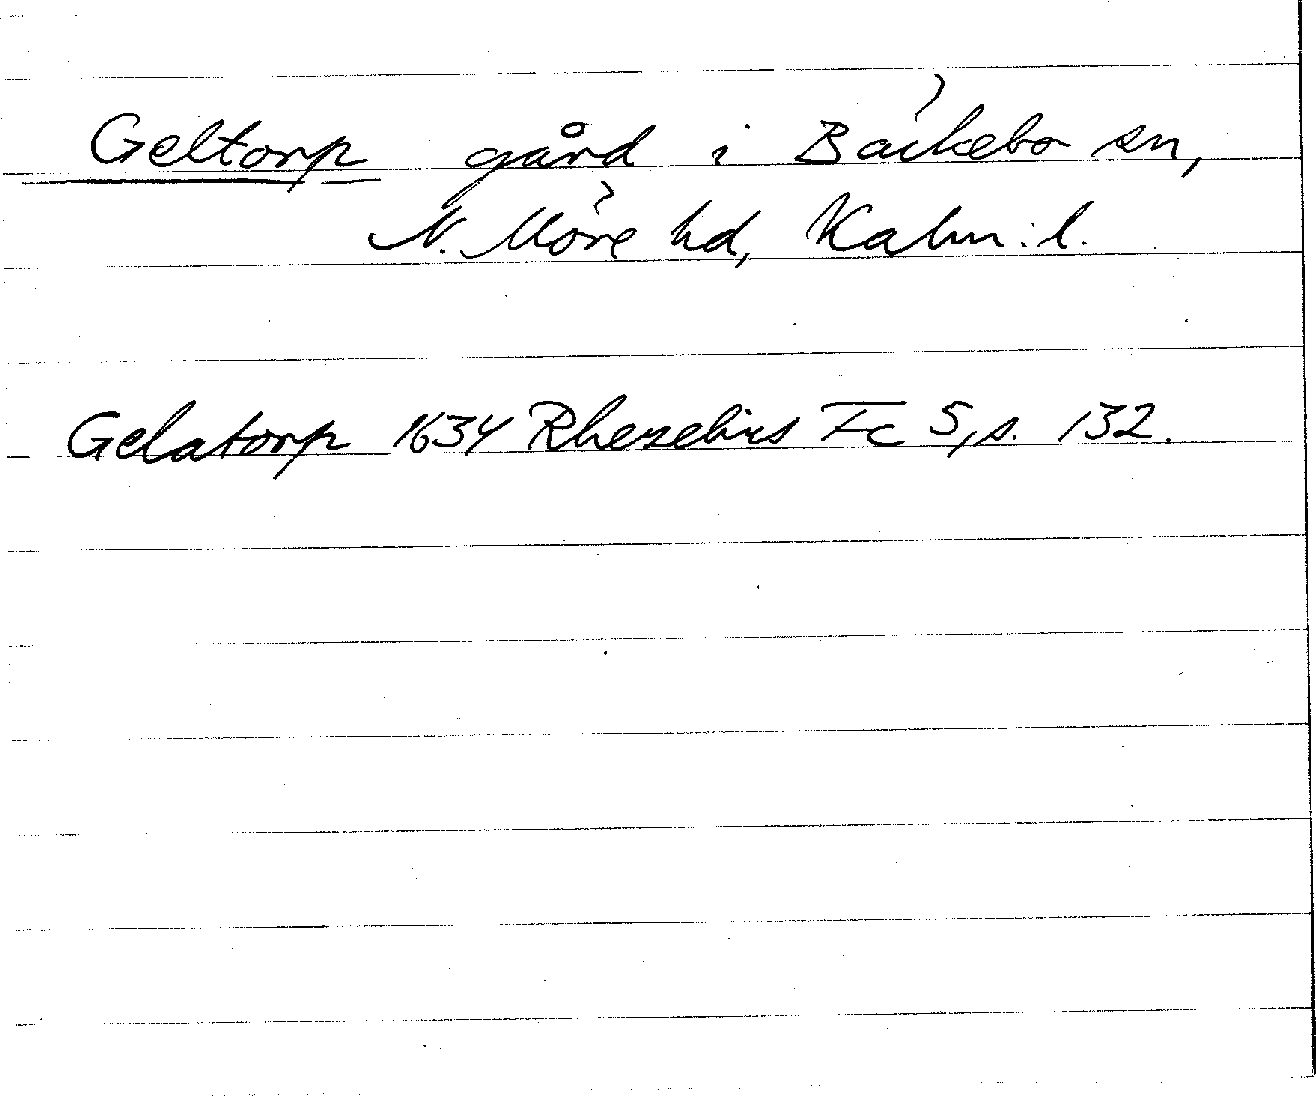 Geltorp gård i Bäckebo sn,
N. Möre hd, Kalm. l.
Gelatorp 1634 Rhezelius Fc 5, s. 132.